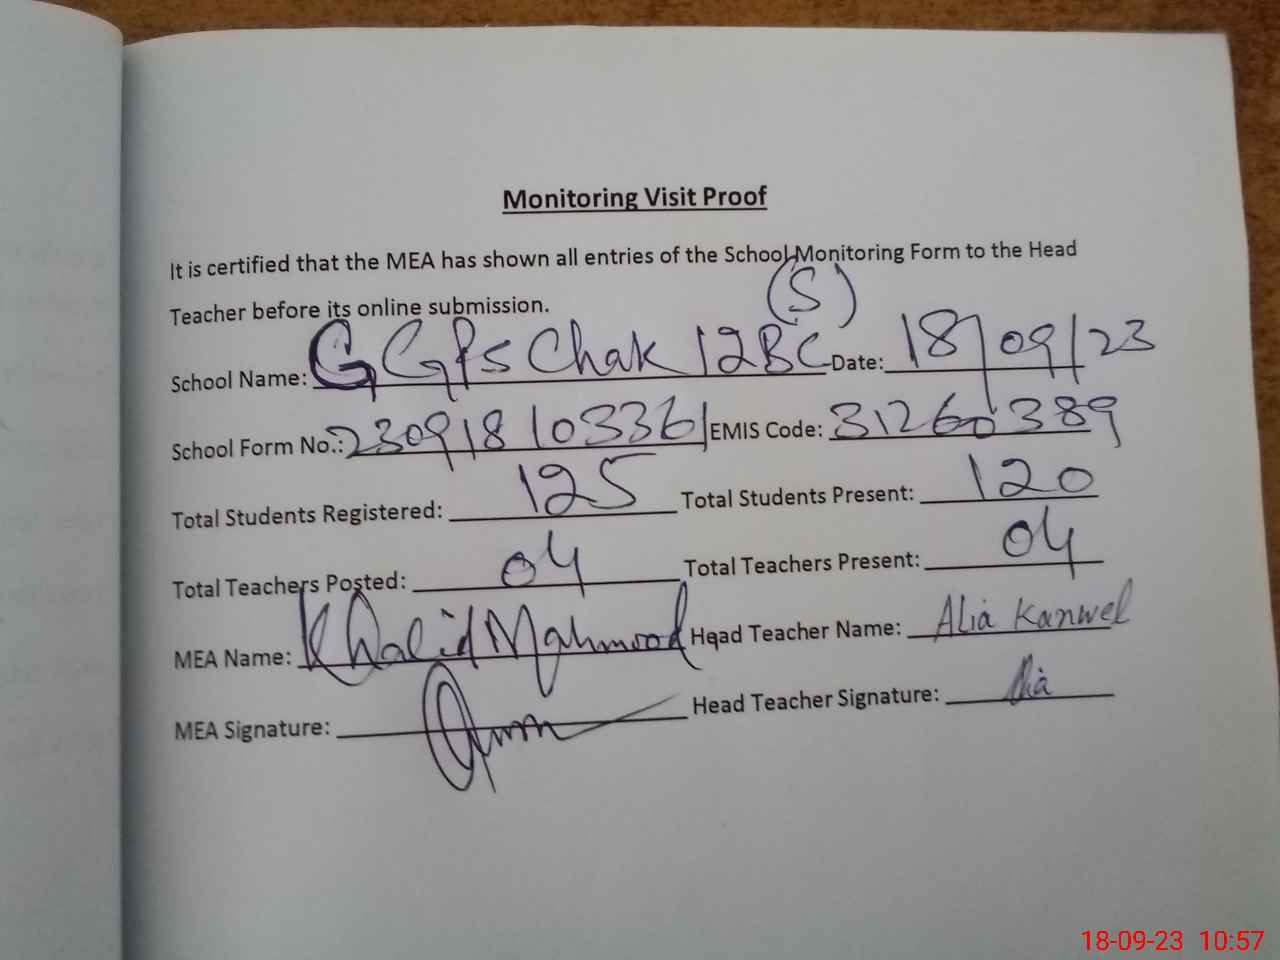 Monitoring Visit Proof
It is certified that the MEA has shown all entries of the School Monitoring Form to the Head
Teacher before its online submission.
(S)
School Name: GGPS Chak 12BC Date: 18/09/23
School Form No.: 230918103361 EMIS Code: 31260389
Total Students Registered: 125 Total Students Present: 120
Total Teachers Posted: 04 Total Teachers Present: 04
MEA Name: Khalid Mahmood Head Teacher Name: Alia Kanwel
MEA Signature: Head Teacher Signature: Alia
18-09-23 10:57